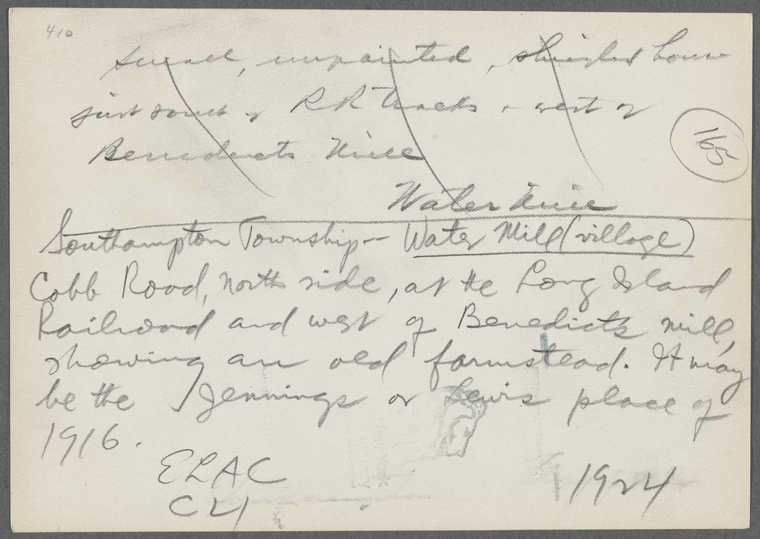 410
Small, unpainted, shingled house
just south of RR tracks & west of
Benedicts Mill
165
Water Mill
Southampton Township - Water Mill (village)
Cobb Road, north side, at the Long Island
Railroad and west of Benedicts mill,
showing an old farmstead. It may
be the Jennings or Lewis place of
1916.
ELAC
CLI
1924